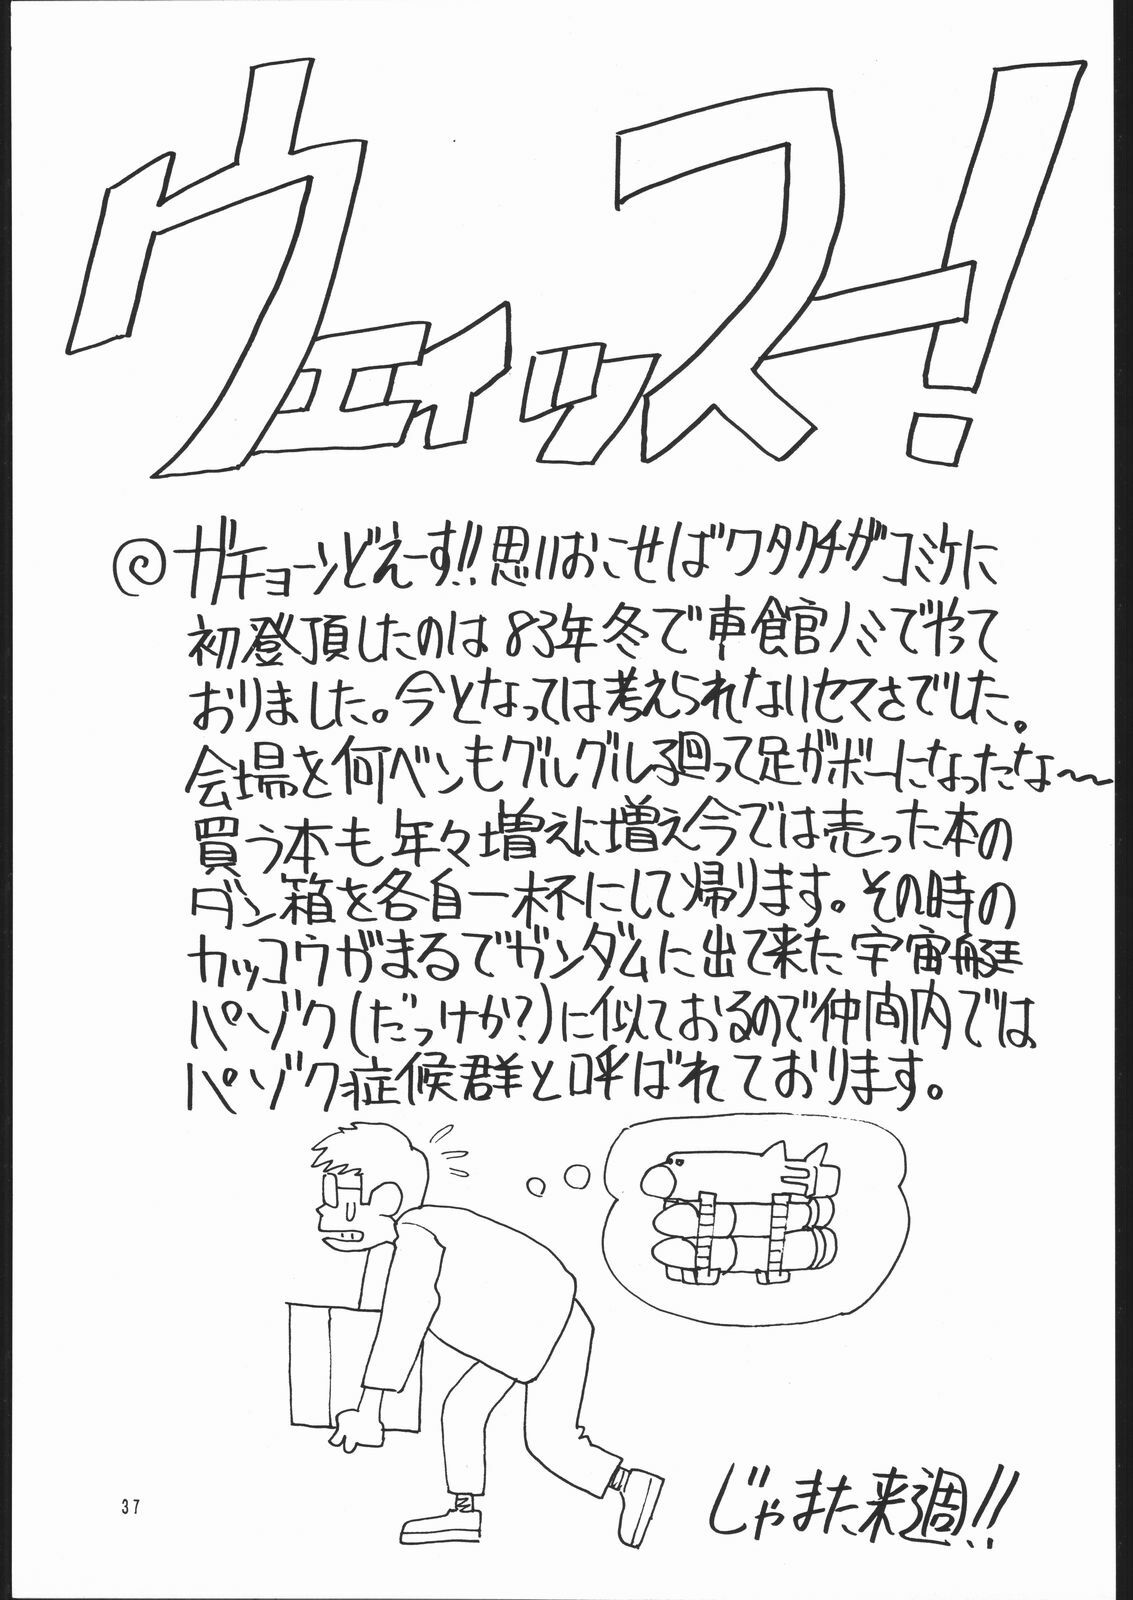 ウェイッスー!
@ガチョーンどえーす!!思いおこせばワタクチがコミケに
初登頂したのは83年冬で車食官ノミでやって
おりました。今となっては考えられないセマさでした。
会場を何ベンもグルグル廻って足がボーになったな〜
買う本も年々増えに増え今では売った本の
ダン箱を各自一杯にして帰ります。その時の
カッコウがまるでガンダムに出て来た宇宙艇
パゾク(だっけか?)に似ておるので仲間内では
パゾク症候群と呼ばれております。
じゃまた来週!!
37